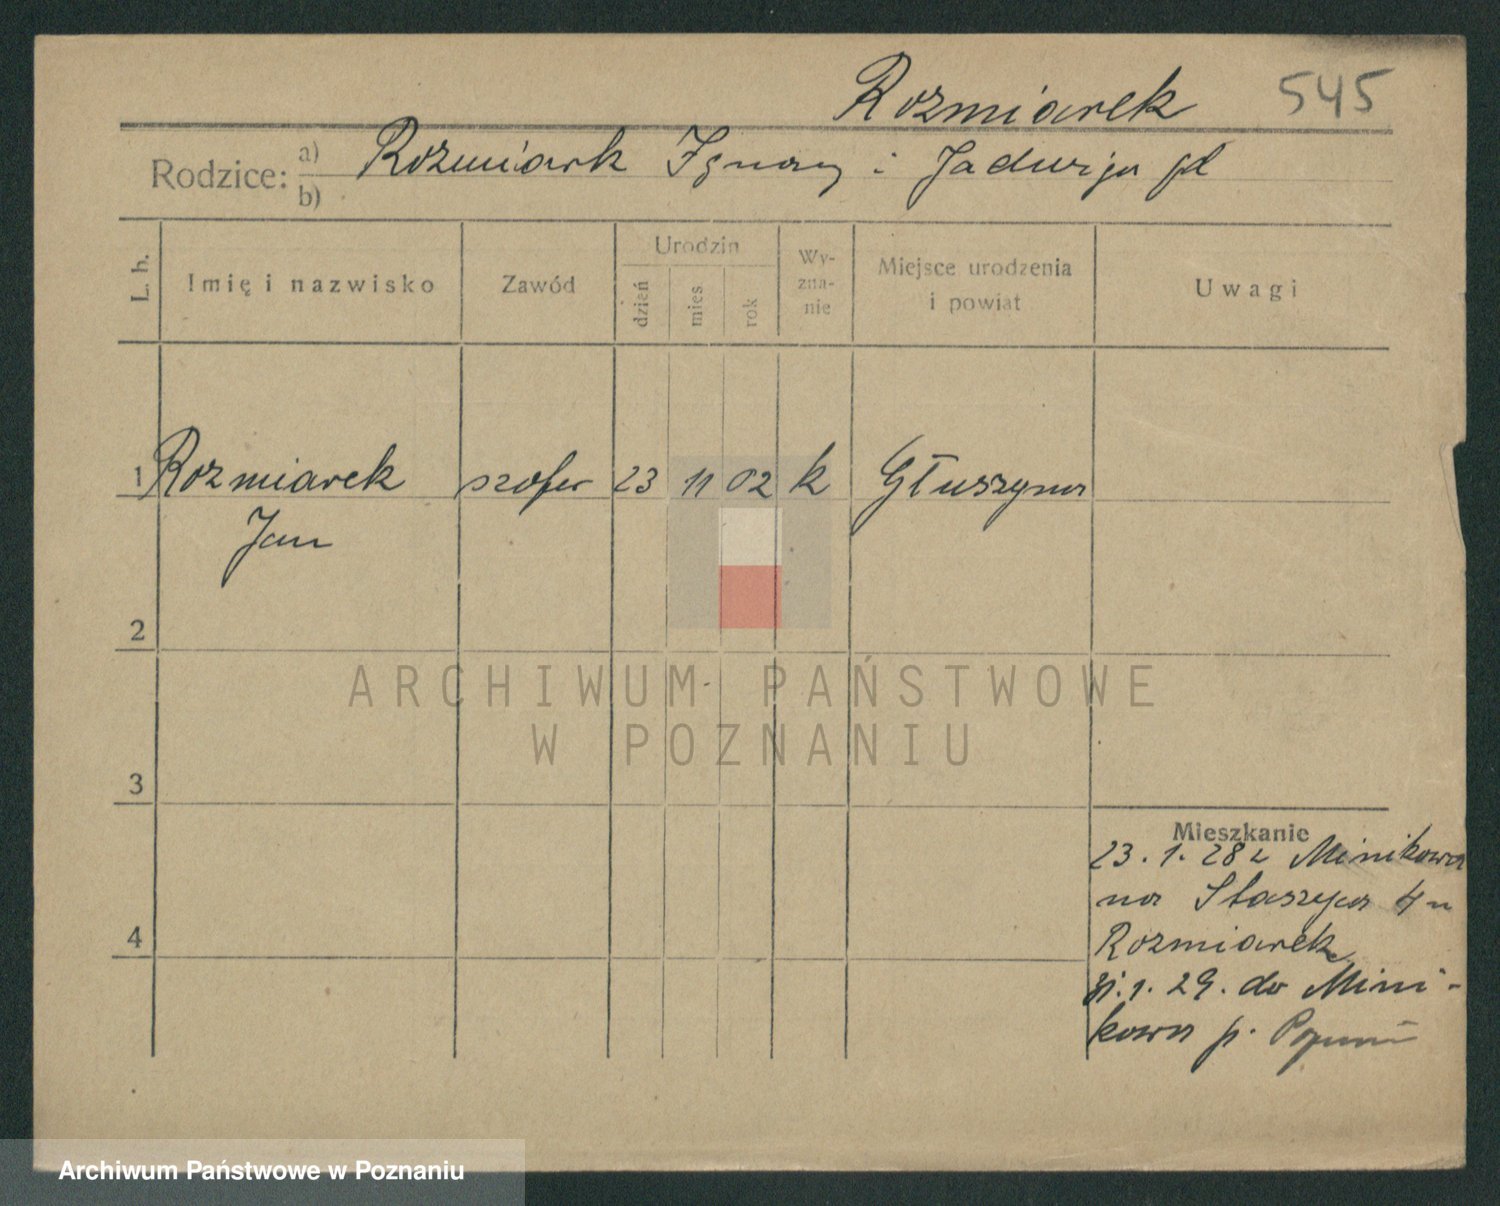 Rozmiarek 545
Rodzice: a) b) Rozmiarek Ignacy i Jadwiga
L. h. Imię i nazwisko Zawód Urodzin dzień mies rok Wy-
zna-
nie Miejsce urodzenia
i powiat Uwagi
1 Rozmiarek szofer 23 11 02 k Głuszyna
Jan
2
ARCHIWUM PAŃSTWOWE
W POZNANIU
3
Mieszkanie
23. 1. 28 z Minikowa
na Staszyca 4 u
Rozmiarek
4
31. 1. 29. do Mini-
kowa p. Poznań
Archiwum Państwowe w Poznaniu